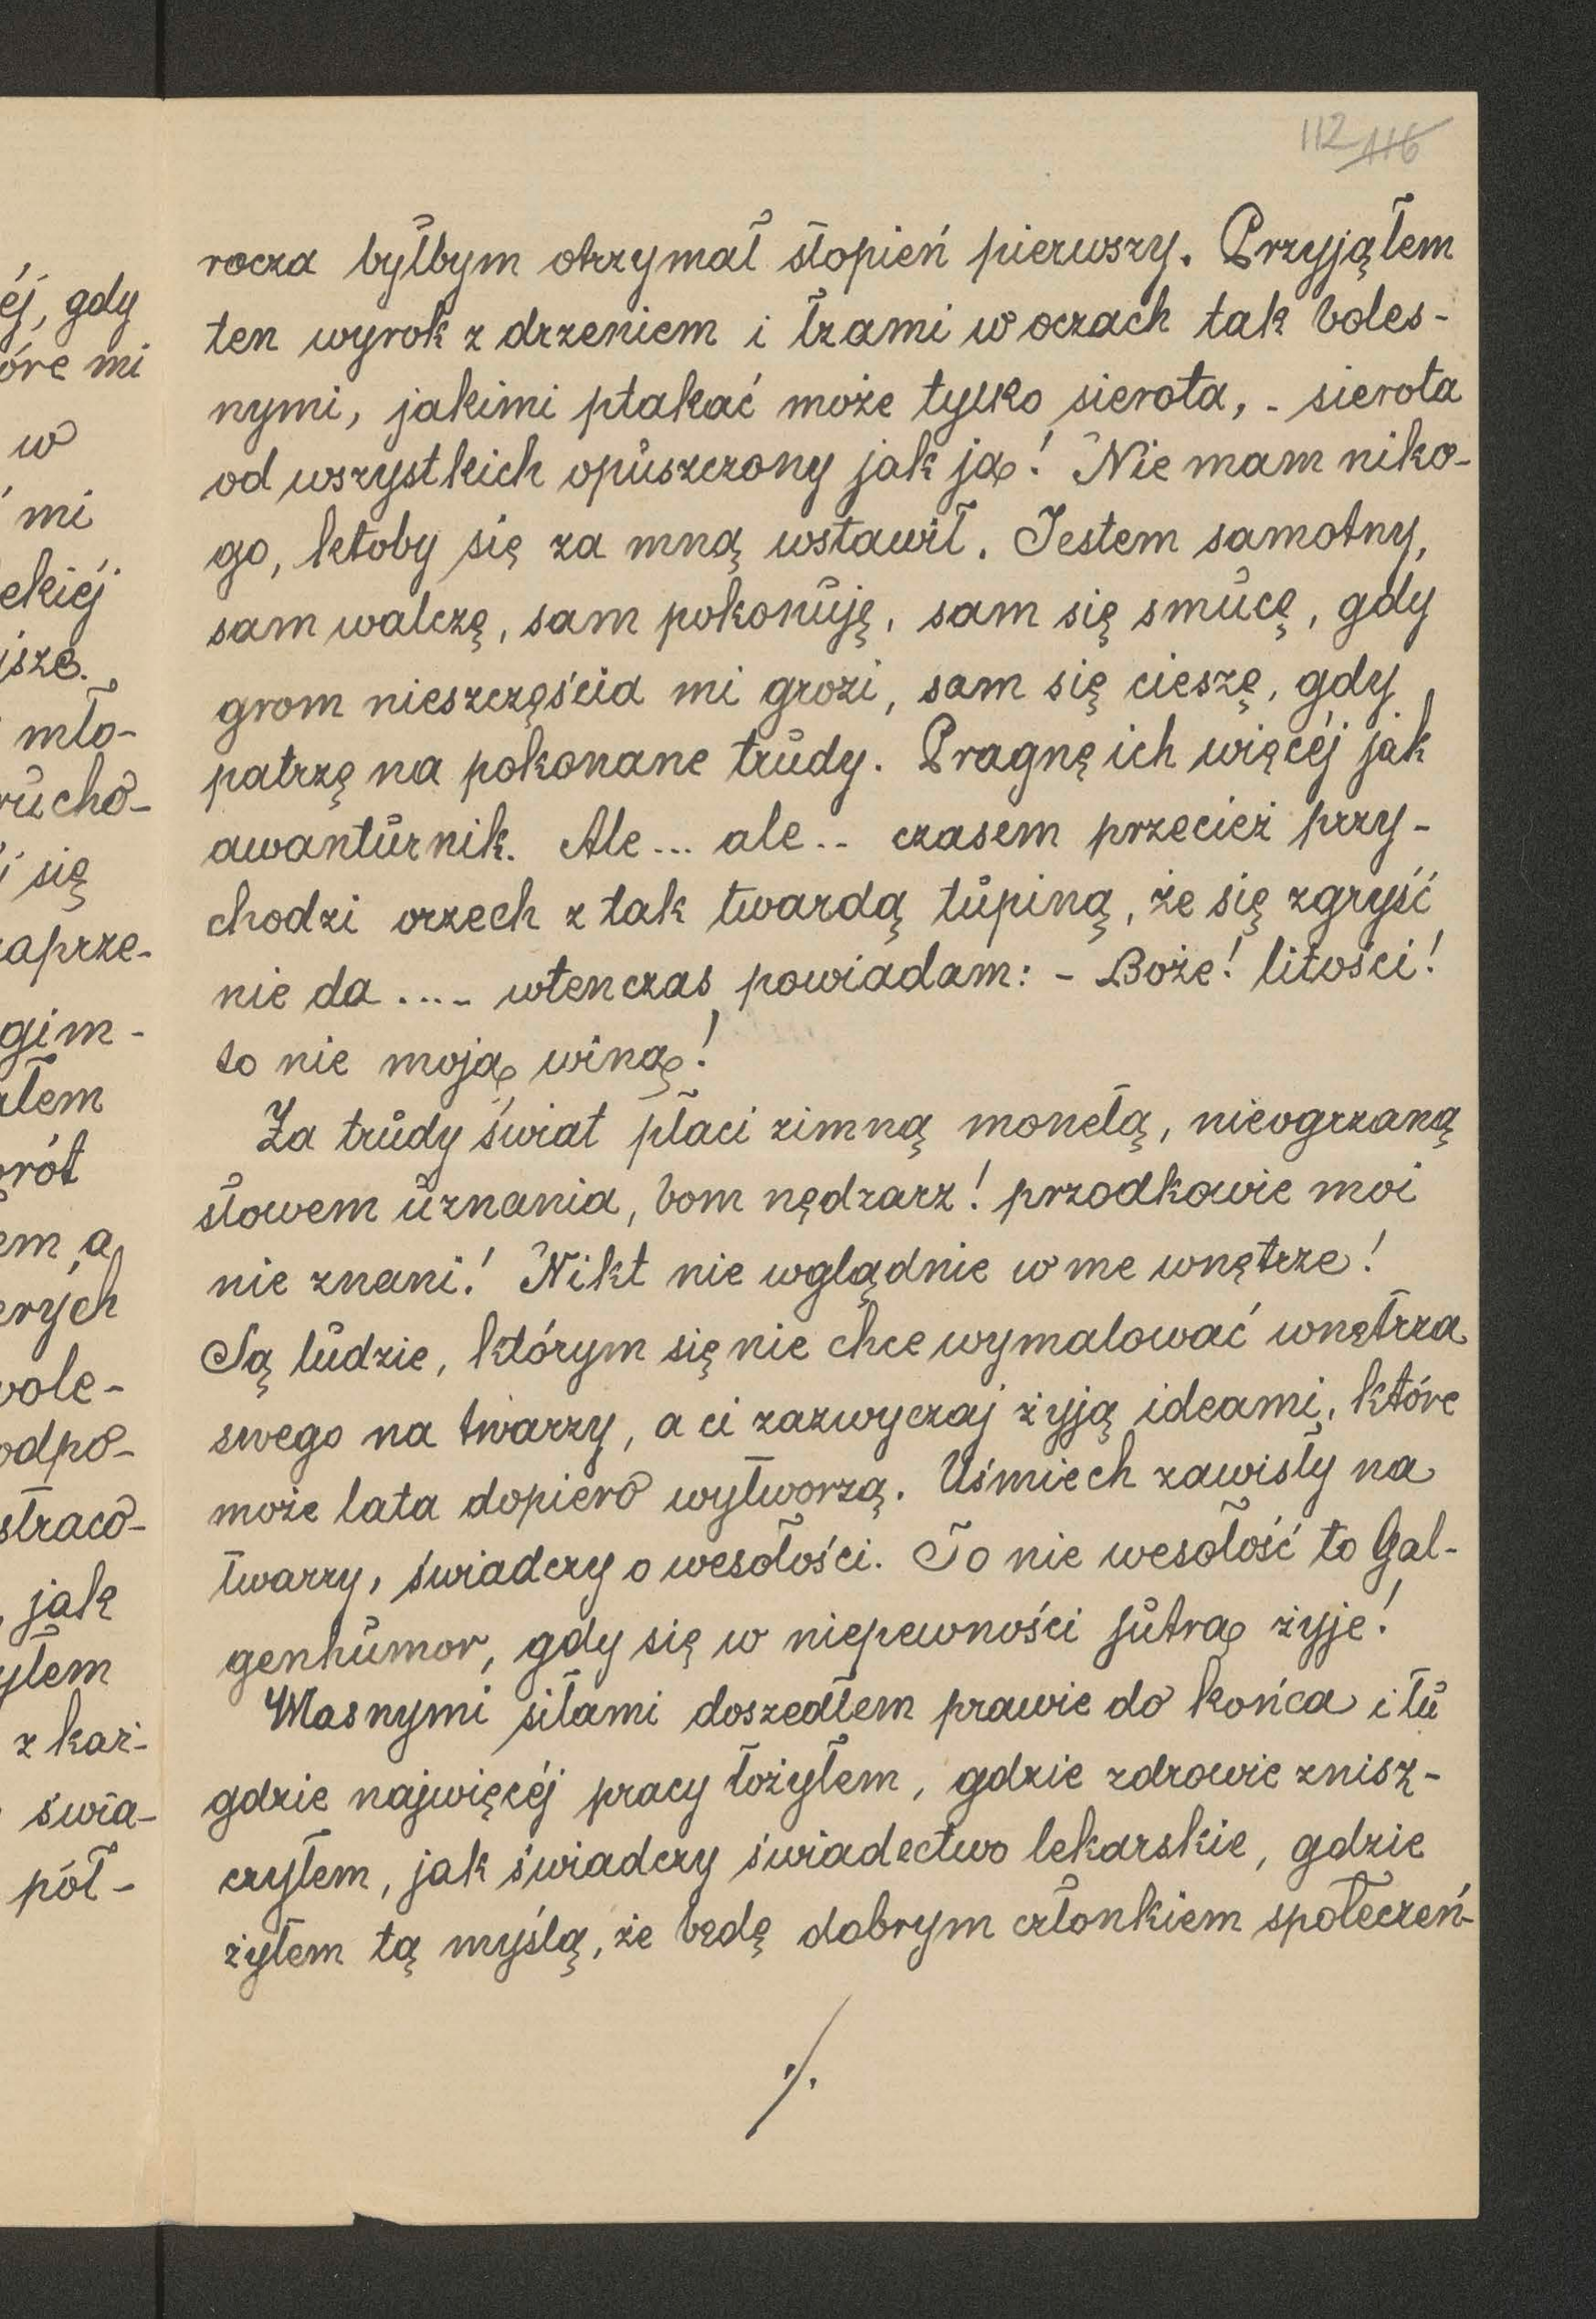 112 116
rocza byłbym otrzymał stopień pierwszy. Przyjąłem
ten wyrok z drżeniem i łzami w oczach tak boles-
nymi, jakimi płakać może tylko sierota, - sierota
od wszystkich opuszczony jak ja! Nie mam niko-
go, ktoby się za mną wstawił. Jestem samotny,
sam walczę, sam pokonuję, sam się smucę, gdy
grom nieszczęścia mi grozi, sam się cieszę, gdy
patrzę na pokonane trudy. Pragnę ich więcéj jak
awanturnik. Ale... ale.. czasem przecież przy-
chodzi orzech z tak twardą łupiną, że się zgryść
nie da .... wtenczas powiadam: - Boże! litości!
to nie moja wina!
Za trudy świat płaci zimną monetą, nieogrzaną
słowem uznania, bom nędzarz! przodkowie moi
nie znani! Nikt nie wglądnie w me wnętrze!
Są ludzie, którym się nie chce wymalować wnętrza
swego na twarzy, a ci zazwyczaj żyją ideami, które
może lata dopiero wytworzą. Uśmiech zawisły na
twarzy, świadczy o wesołości. To nie wesołość to Gal-
genhumor, gdy się w niepewności jutra żyje!
Własnymi siłami doszedłem prawie do końca i tu
gdzie najwięcéj pracy łożyłem, gdzie zdrowie znisz-
czyłem, jak świadczy świadectwo lekarskie, gdzie
żyłem tą myślą, że będę dobrym członkiem społeczeń-
./.
éj, gdy
óre mi
w
mi
ekiéj
jsze.
mło-
rucho-
i się
zaprze-
gim-
ałem
rót
em a
erych
wole-
odpo-
straco-
, jak
yłem
z każ-
świa-
pół-